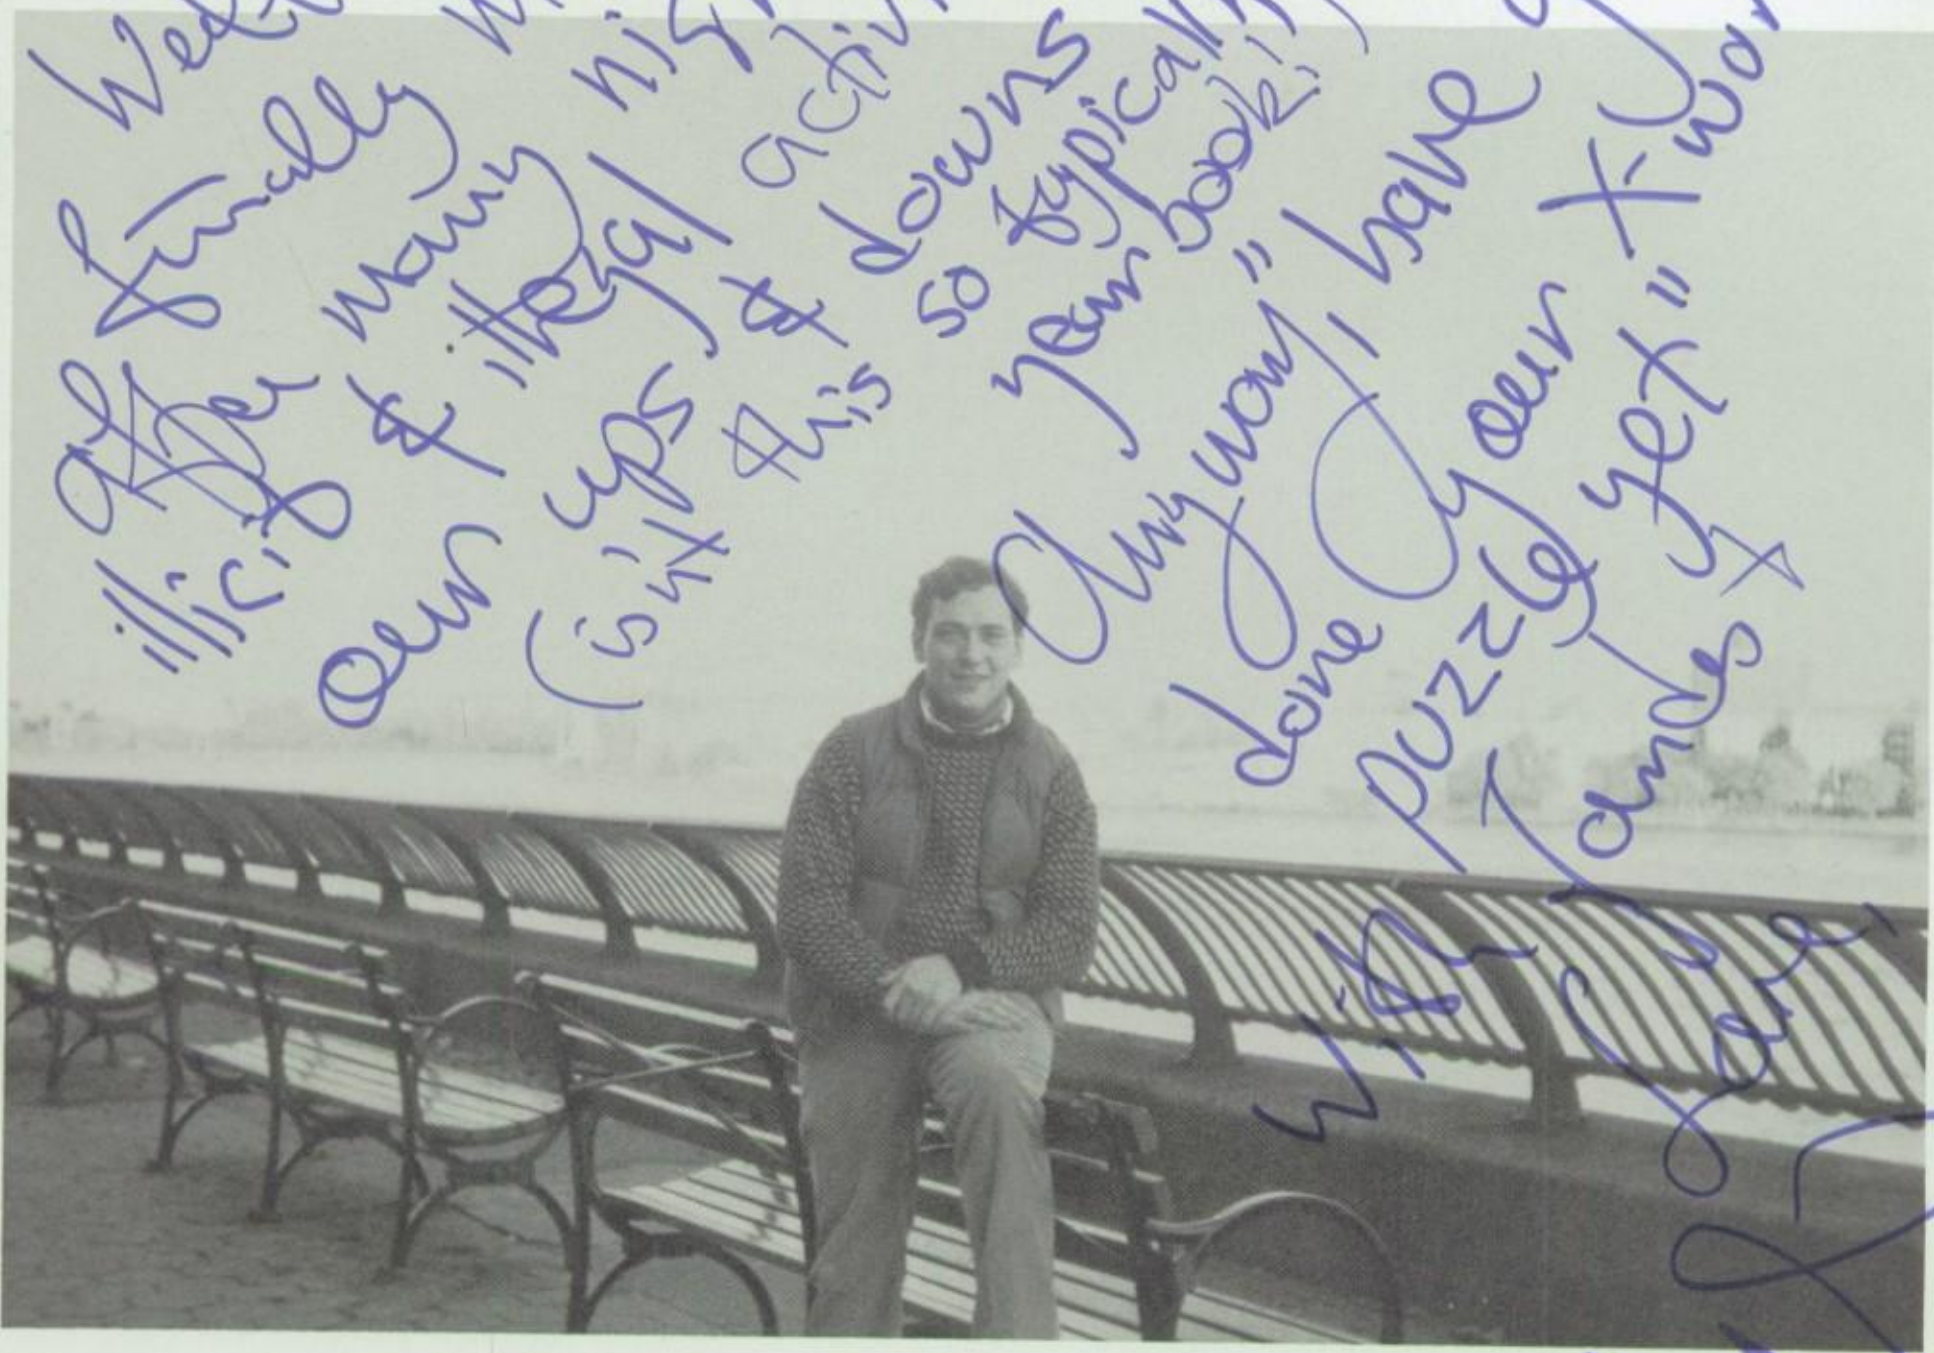 Well
finally
after many
illicit & illegal
our ups & downs
(isn't this so typically
year book!)
Anyway," have
done your X-wor
puzzle yet"
With
Love,